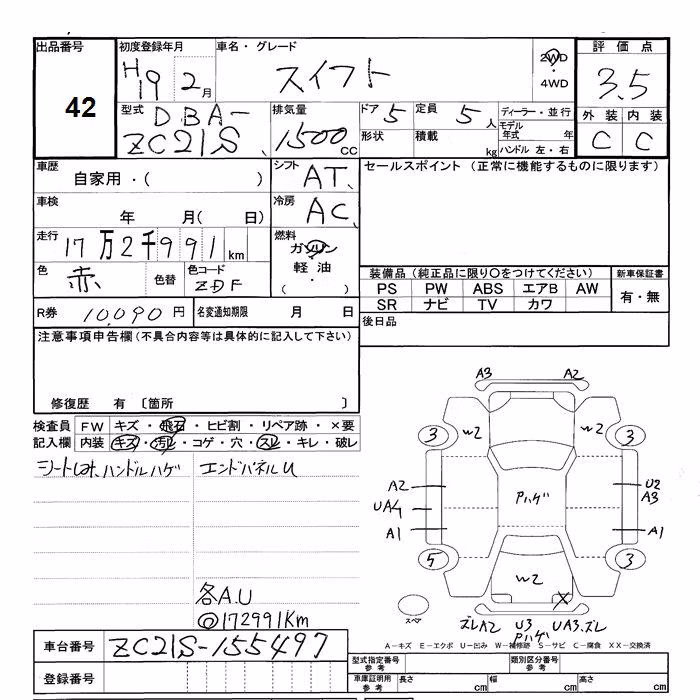 出品番号
42
初度登録年月
H19年 2月
車名・グレード
スイフト
2WD
・
4WD
評価点
3.5
外装 内装
C C
型式
DBA-
ZC21S
排気量
1500cc
ドア 5
形状
定員 5人
積載 kg
ディーラー・並行
モデル年式 年
ハンドル 左・右
車歴
自家用・( )
シフト
AT
セールスポイント (正常に機能するものに限ります)
車検
年 月( 日)
冷房
AC
走行
17万2千991km
燃料
ガソリン
軽油
( ・ )
色
赤
色替
色コード
ZDF
装備品(純正品に限り○をつけてください)
PS PW ABS エアB AW
SR ナビ TV カワ
新車保証書
有・無
R券 10,090円
名変通知期限 月 日
後日品
注意事項申告欄(不具合内容等は具体的に記入して下さい)
修復歴 有 〔箇所 〕
検査員
記入欄
FW キズ・飛石・ヒビ割・リペア跡・×要
内装 キズ・汚レ・コゲ・穴・スレ・キレ・破レ
ハンドルハゲ
エンドパネルU
各A.U
◎172991Km
A3 A2
3 W2 W2 3
A2
UA4
A1
Pハゲ
U2
A3
A1
5 W2 X 3
スペア
ズレA2 U3 UA3.ズレ
Pハゲ
A−キズ E−エクボ U−凹み W−補修跡 S−サビ C−腐食 XX−交換済
車台番号 ZC21S-155497
登録番号
型式指定番号
参考
類別区分番号
参考
車庫証明用
参考
長さ cm
幅 cm
高さ cm